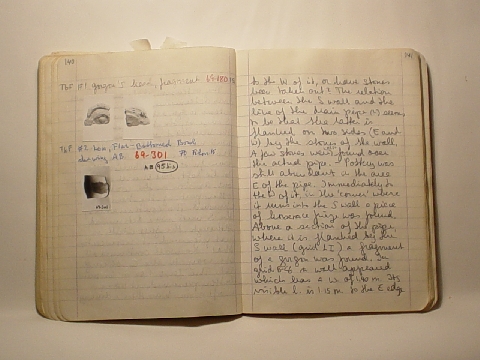 140
TbP #1 gorgon I hem, fragment
TbP #2 hem, Flat-Bottomed Bowl
drawing AB 69-301 Pt
AB 95 bis
141
to the W of it, or have stones
been taken out? The relation
between the S wall and the
line of the drain pipe seems
to be that the latter is
flanked on two sides (E and
W) by the stones of the wall.
A few stones were found over
the actual pipe. Pottery was
still abundant in the area
E of the pipe. Immediately to
the of it, in the 'corner' where
it runs into the S wall a piece
of terracotta frieze was found.
Above a section of the pipe,
where it is flanked by the
S wall (grid ) a fragment
of a gorgon was found. In
grid a wall appeared
which has a W of m. Its
visible L. is 1.15 m. to the E edge